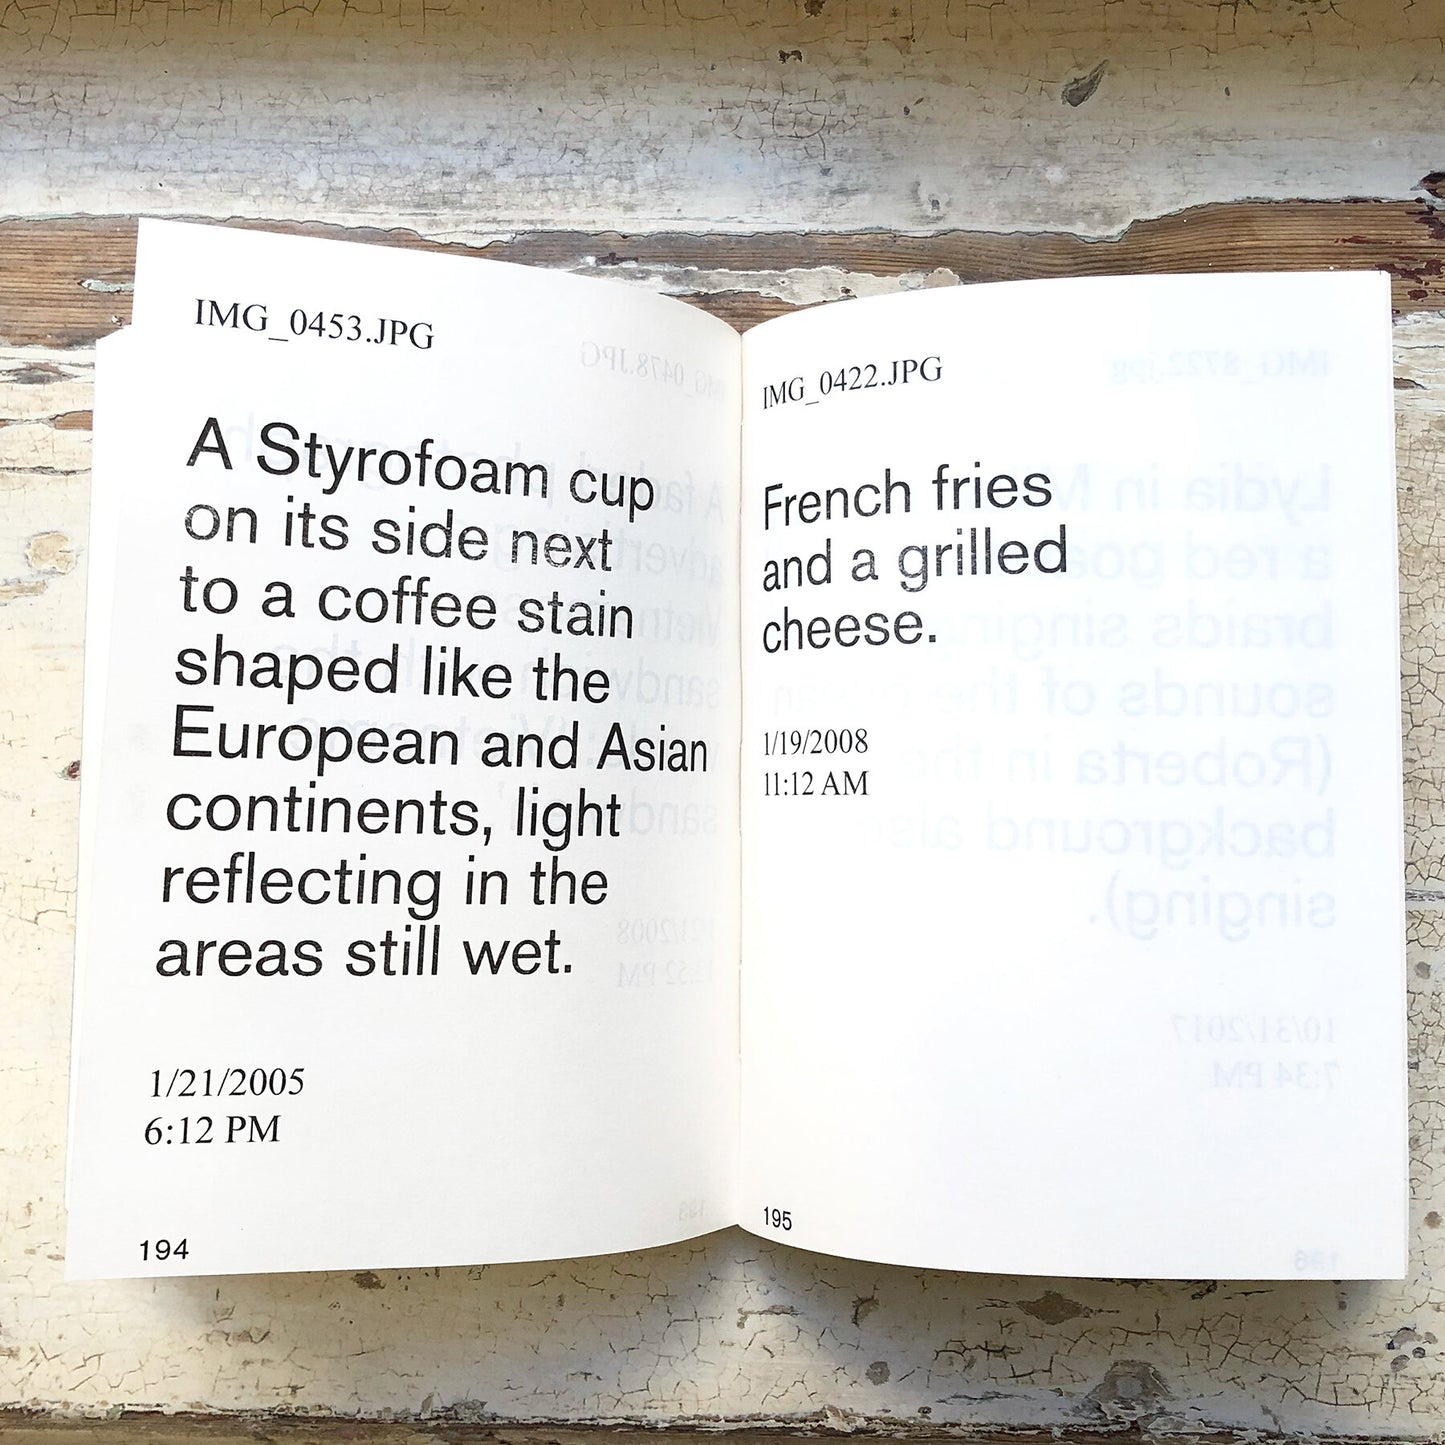 IMG_0453.JPG
A Styrofoam cup
on its side next
to a coffee stain
shaped like the
European and Asian
continents, light
reflecting in the
areas still wet.
1/21/2005
6:12 PM
194
IMG_0422.JPG
French fries
and a grilled
cheese.
1/19/2008
11:12 AM
195